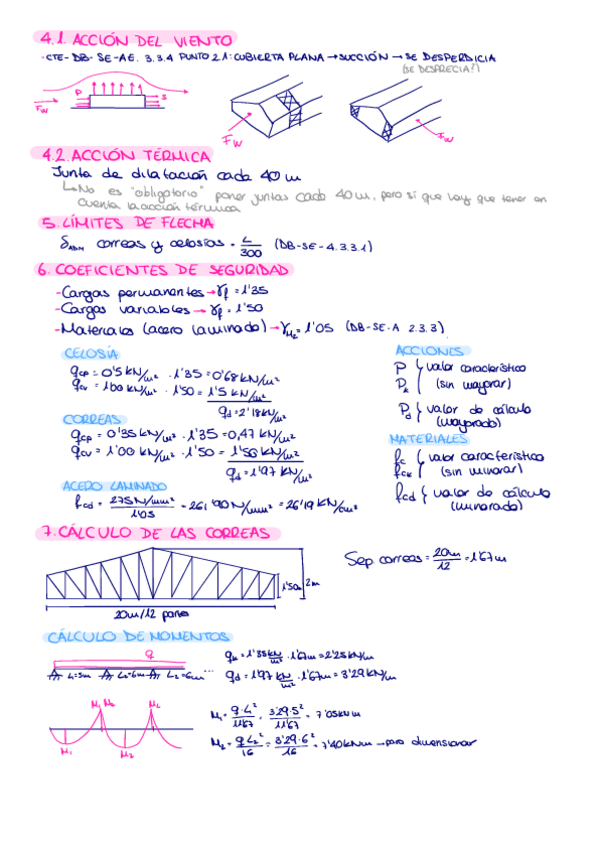 4.1. ACCIÓN DEL VIENTO
-CTE-DB-SE-AE. 3.3.4 PUNTO 2.1: CUBIERTA PLANA → SUCCIÓN → SE DESPERDICIA
(SE DESPRECIA?)
P
S
Fw
Fw
Fw
4.2. ACCIÓN TÉRMICA
Junta de dilatación cada 40 m
↳ No es "obligatorio" poner juntas cada 40 m, pero sí que hay que tener en
cuenta la acción térmica
5. LÍMITES DE FLECHA
δADM correas y celosías = L/300 (DB-SE-4.3.3.1)
6. COEFICIENTES DE SEGURIDAD
-Cargas permanentes → γf = 1'35
-Cargas variables → γf = 1'50
-Materiales (acero laminado) → γM2 = 1'05 (DB-SE-A 2.3.3)
CELOSÍA
qcp = 0'5 kN/m² · 1'35 = 0'68 kN/m²
qcv = 1'00 kN/m² · 1'50 = 1'5 kN/m²
qd = 2'18 kN/m²
CORREAS
qcp = 0'35 kN/m² · 1'35 = 0,47 kN/m²
qcv = 1'00 kN/m² · 1'50 = 1'50 kN/m²
qd = 1'97 kN/m²
ACERO LAMINADO
fcd = 275 N/mm² / 1'05 = 261'90 N/mm² = 26'19 kN/cm²
ACCIONES
P
Pk
valor característico
(sin mayorar)
Pd
valor de cálculo
(mayorado)
MATERIALES
fc
fck
valor característico
(sin minorar)
fcd
valor de cálculo
(minorado)
7. CÁLCULO DE LAS CORREAS
Sep. correas = 20m/12 = 1'67 m
1'50m
2m
20m/12 partes
CÁLCULO DE MOMENTOS
q
L=5m L2=6m L2=6m ...
qk = 1'35 kN/m² · 1'67m = 2'25 kN/m
qd = 1'97 kN/m² · 1'67m = 3'29 kN/m
M1 M2 M2
M1 M2
M1 = q·L²/11'67 = 3'29·5²/11'67 = 7'05 kN m
M2 = q L2²/16 = 3'29·6²/16 = 7'40 kNm → para dimensionar